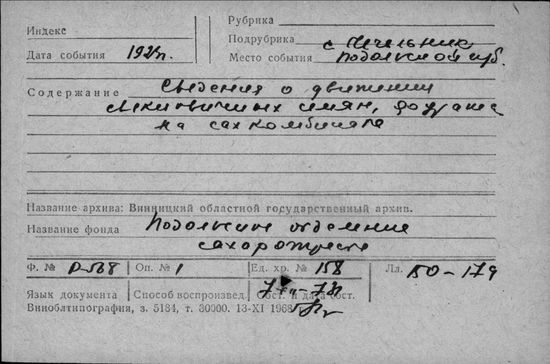 Рубрика
Индекс
Подрубрика с. Чечельник
Дата события 192 г.
Место события Подольской губ.
Содержание Сведения о движении
имян,
на сахкомбината
Название архива: Винницкий областной государственный архив.
Название фонда Подольское отделение
сахаротреста
Ф. № Р-568 Оп. № 1 Ед. хр. № 158 Лл. 150-179
Язык документа Способ воспроизвед. Обст. и дата обст.
Виноблтипография, з. 5184, т. 30000. 13-XI 1968